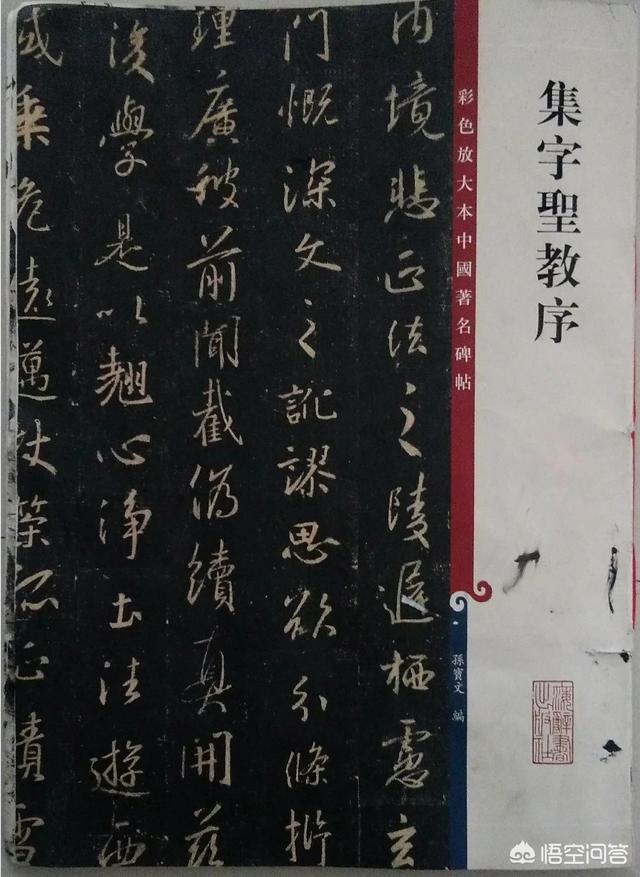 集字聖教序
彩色放大本中國著名碑帖
孫寶文 編
上海辭書出版社
内境悲正法之陵遲栖慮玄
門慨深文之訛謬思欲分條析
理廣彼前聞截偽續真開茲
後學是以翹心淨土往遊西
域乘危遠邁杖策孤征積雪
悟空问答